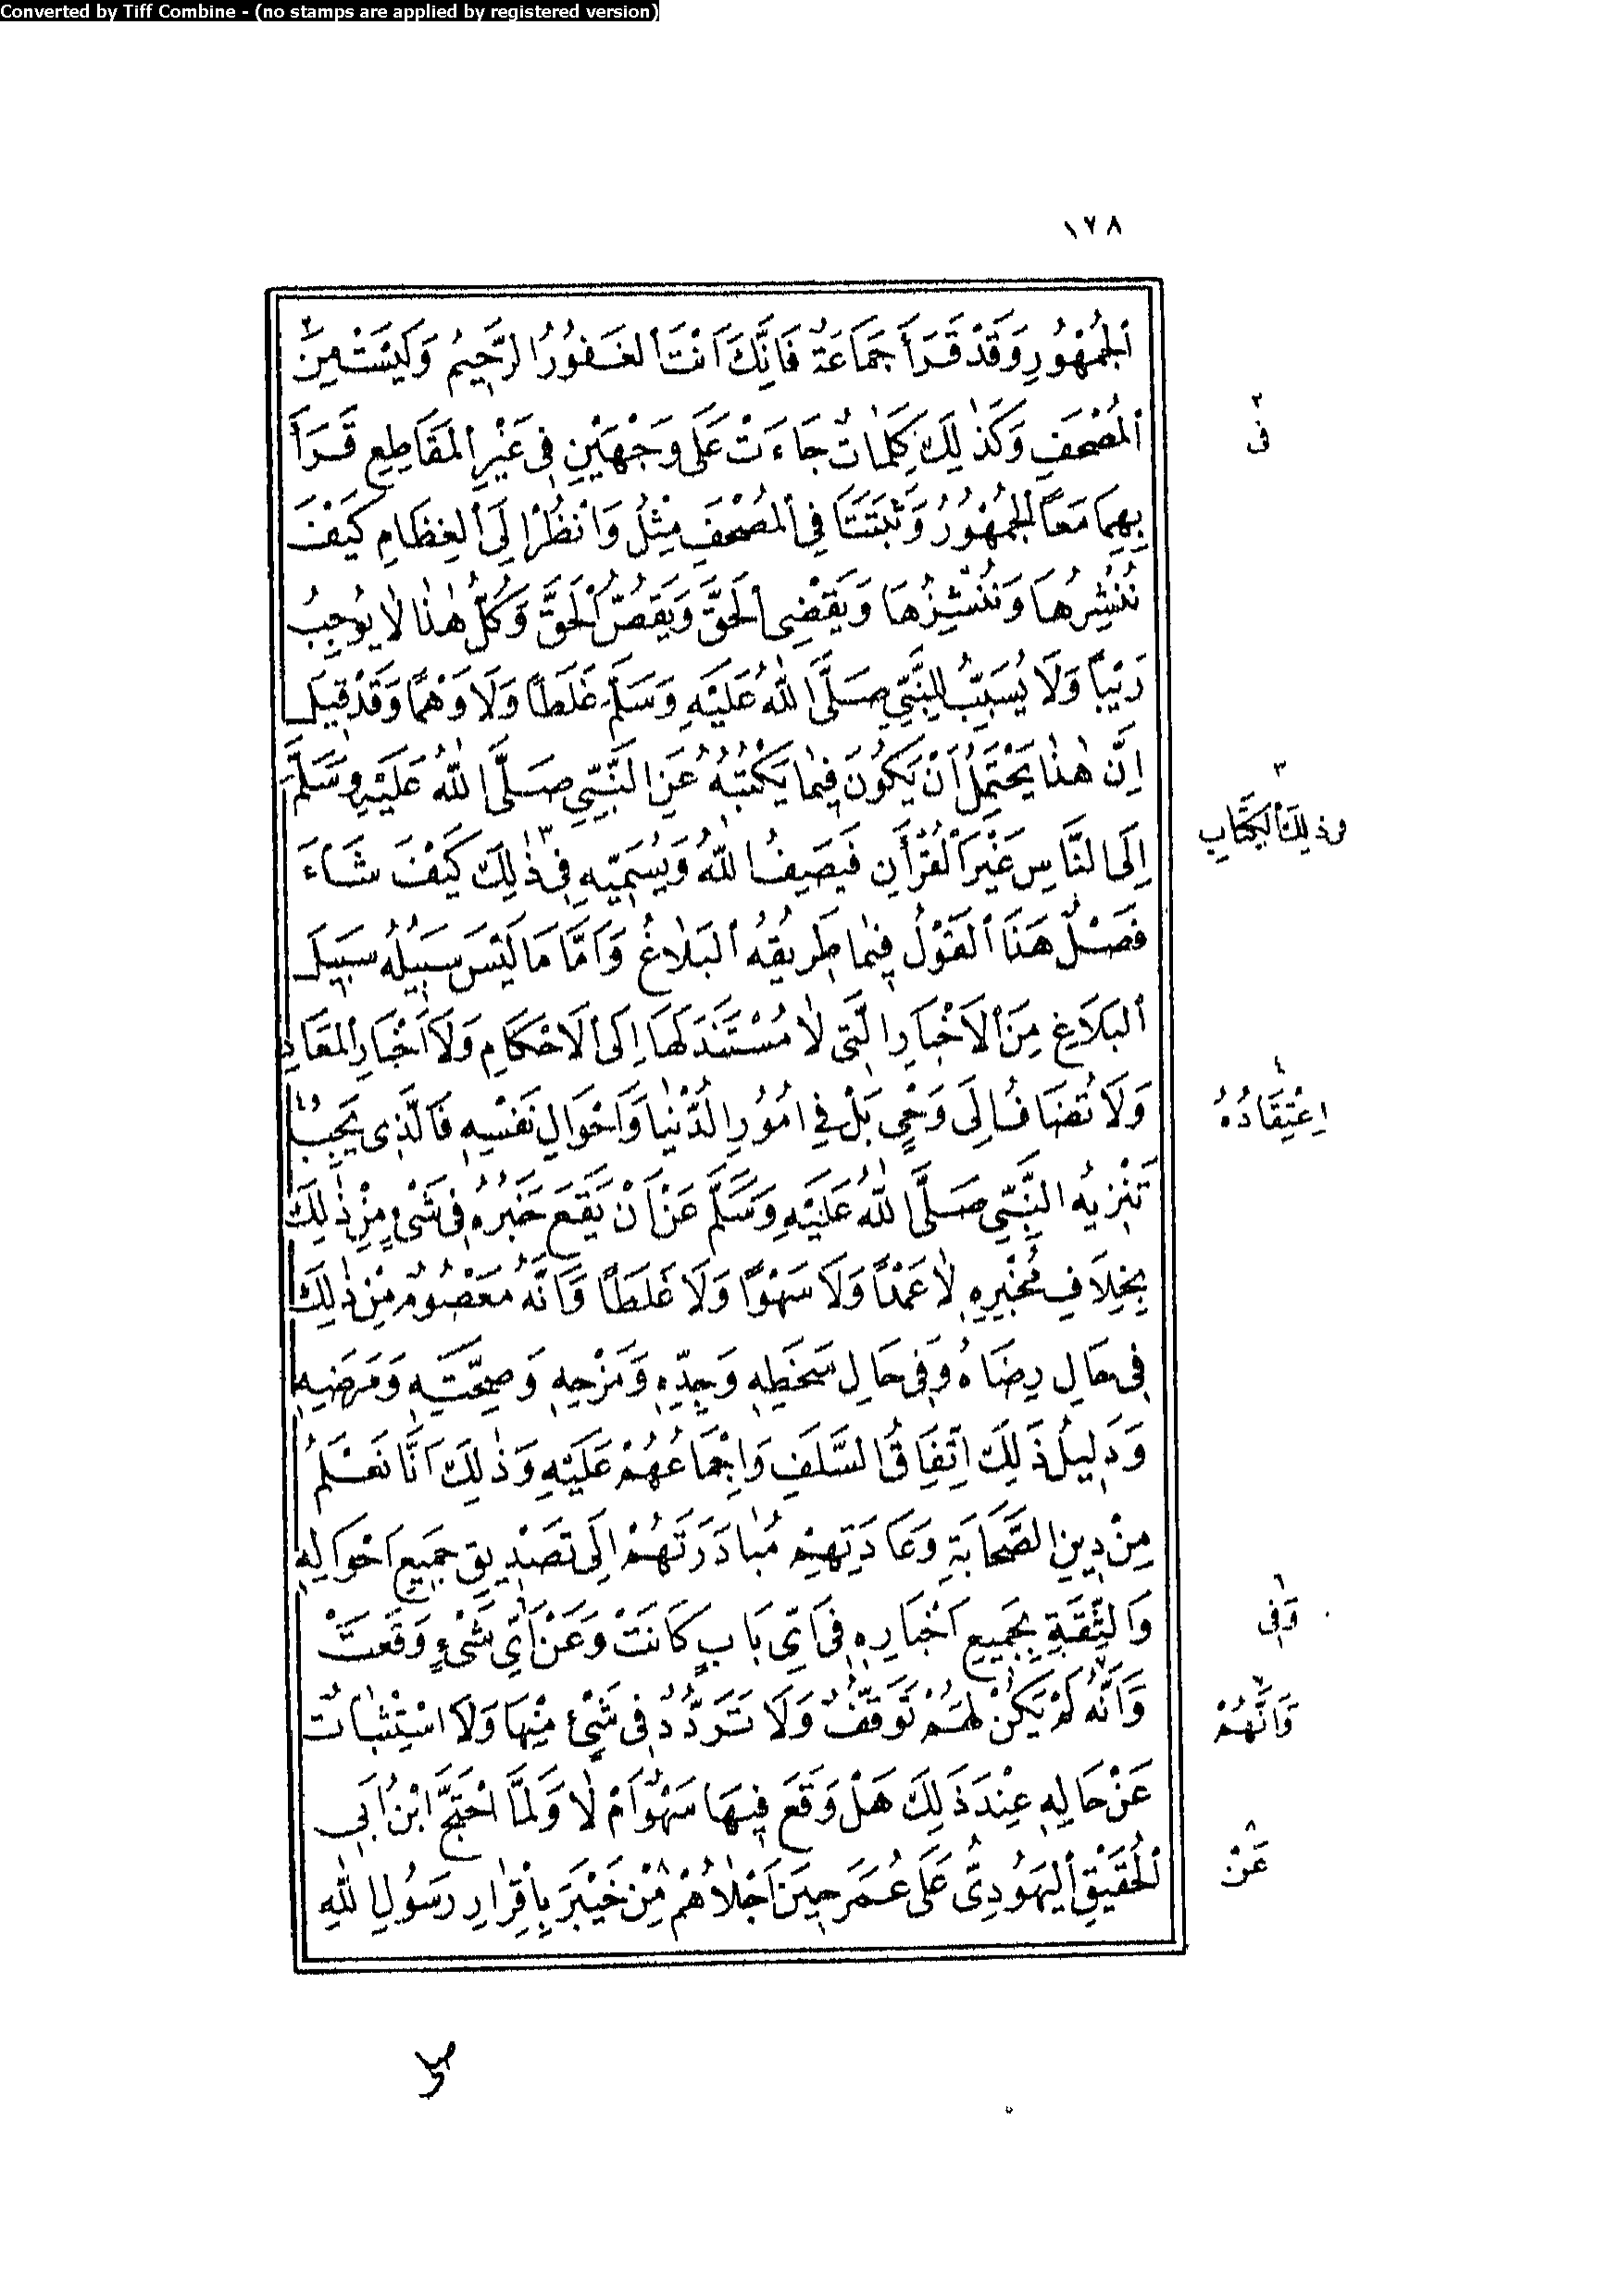 Converted by Tiff Combine - (no stamps are applied by registered version)
١٧٨
اَلْجُمْهُورِ وَقَدْ قَرَأَ جَمَاعَةٌ فَاِنَّكَ اَنْتَ الْغَفُورُ الرَّحِيمُ وَلَيْسَتْ مِنَ٢
اَلْمُصْحَفِ وَكَذٰلِكَ كَلِمَاتٌ جَاءَتْ عَلَى وَجْهَيْنِ فِى غَيْرِ الْمَقَاطِعِ قَرَأَ
بِهِمَا مَعًا الْجُمْهُورُ وَثَبَتَتَا فِى الْمُصْحَفِ مِثْلُ وَانْظُرْ اِلَى الْعِظَامِ كَيْفَ
نُنْشِرُهَا وَنُنْشِزُهَا وَيَقْضِى الْحَقَّ وَيَقُصُّ الْحَقَّ وَكُلُّ هٰذَا لَا يُوجِبُ
رَيْبًا وَلَا يُسَبِّبُ لِلنَّبِىِّ صَلَّى اللهُ عَلَيْهِ وَسَلَّمَ غَلَطًا وَلَا وَهْمًا وَقَدْ قِيلَ
اِنَّ هٰذَا يَحْتَمِلُ اَنْ يَكُونَ فِيمَا يَكْتُبُهُ عَنِ النَّبِىِّ صَلَّى اللهُ عَلَيْهِ وَسَلَّمَ
اِلَى النَّاسِ غَيْرَ الْقُرْأَنِ فَيَصِفُ اللهَ وَيُسَمِّيهِ فِى٣ ذٰلِكَ كَيْفَ شَاءَ
فَصْلٌ هٰذَا الْقَوْلُ فِيمَا طَرِيقُهُ الْبَلَاغُ وَاَمَّا مَا لَيْسَ سَبِيلُهُ سَبِيلَ
اَلْبَلَاغِ مِنَ الْاَخْبَارِ الَّتِى لَا مُسْتَنَدَ لَهَا اِلَى الْاَحْكَامِ وَلَا اَخْبَارِ الْمَعَادِ
وَلَا تُضَافُ اِلَى وَحْىٍ بَلْ فِى اُمُورِ الدُّنْيَا وَاَحْوَالِ نَفْسِهِ فَالَّذِى يَجِبُ٤
تَنْزِيهُ النَّبِىِّ صَلَّى اللهُ عَلَيْهِ وَسَلَّمَ عَنْ اَنْ يَقَعَ خَبَرُهُ فِى شَىْءٍ مِنْ ذٰلِكَ
بِخِلَافِ مُخْبَرِهِ لَا عَمْدًا وَلَا سَهْوًا وَلَا غَلَطًا وَاَنَّهُ مَعْصُومٌ مِنْ ذٰلِكَ
فِى حَالِ رِضَاهُ وَفِى حَالِ سَخَطِهِ وَجِدِّهِ وَمَزْحِهِ وَصِحَّتِهِ وَمَرَضِهِ
وَدَلِيلُ ذٰلِكَ اتِّفَاقُ السَّلَفِ وَاِجْمَاعُهُمْ عَلَيْهِ وَذٰلِكَ اَنَّا نَعْلَمُ
مِنْ دِينِ الصَّحَابَةِ وَعَادَتِهِمْ مُبَادَرَتَهُمْ اِلَى تَصْدِيقِ جَمِيعِ اَحْوَالِهِ
وَالثِّقَةِ بِجَمِيعِ اَخْبَارِهِ فِى اَىِّ بَابٍ كَانَتْ وَعَنْ اَىِّ شَىْءٍ وَقَعَتْ
وَاَنَّهُ لَمْ يَكُنْ لَهُمْ تَوَقُّفٌ وَلَا تَرَدُّدٌ فِى شَىْءٍ مِنْهَا وَلَا اسْتِثْبَاتٌ
عَنْ حَالِهِ عِنْدَ ذٰلِكَ هَلْ وَقَعَ فِيهَا سَهْوٌ اَمْ لَا وَلَمَّا احْتَجَّ ابْنُ اَبِى
الْحُقَيْقِ الْيَهُودِىُّ عَلَى عُمَرَ حِينَ اَجْلَاهُمْ مِنْ٨ خَيْبَرَ بِاِقْرَارِ رَسُولِ اللهِ
٢
فى
٣
وذلك الكتاب
٤
اِعْتِقَادُهُ
٦
وَفِى
٧
وَاَنَّهُمْ
٨
عَنْ